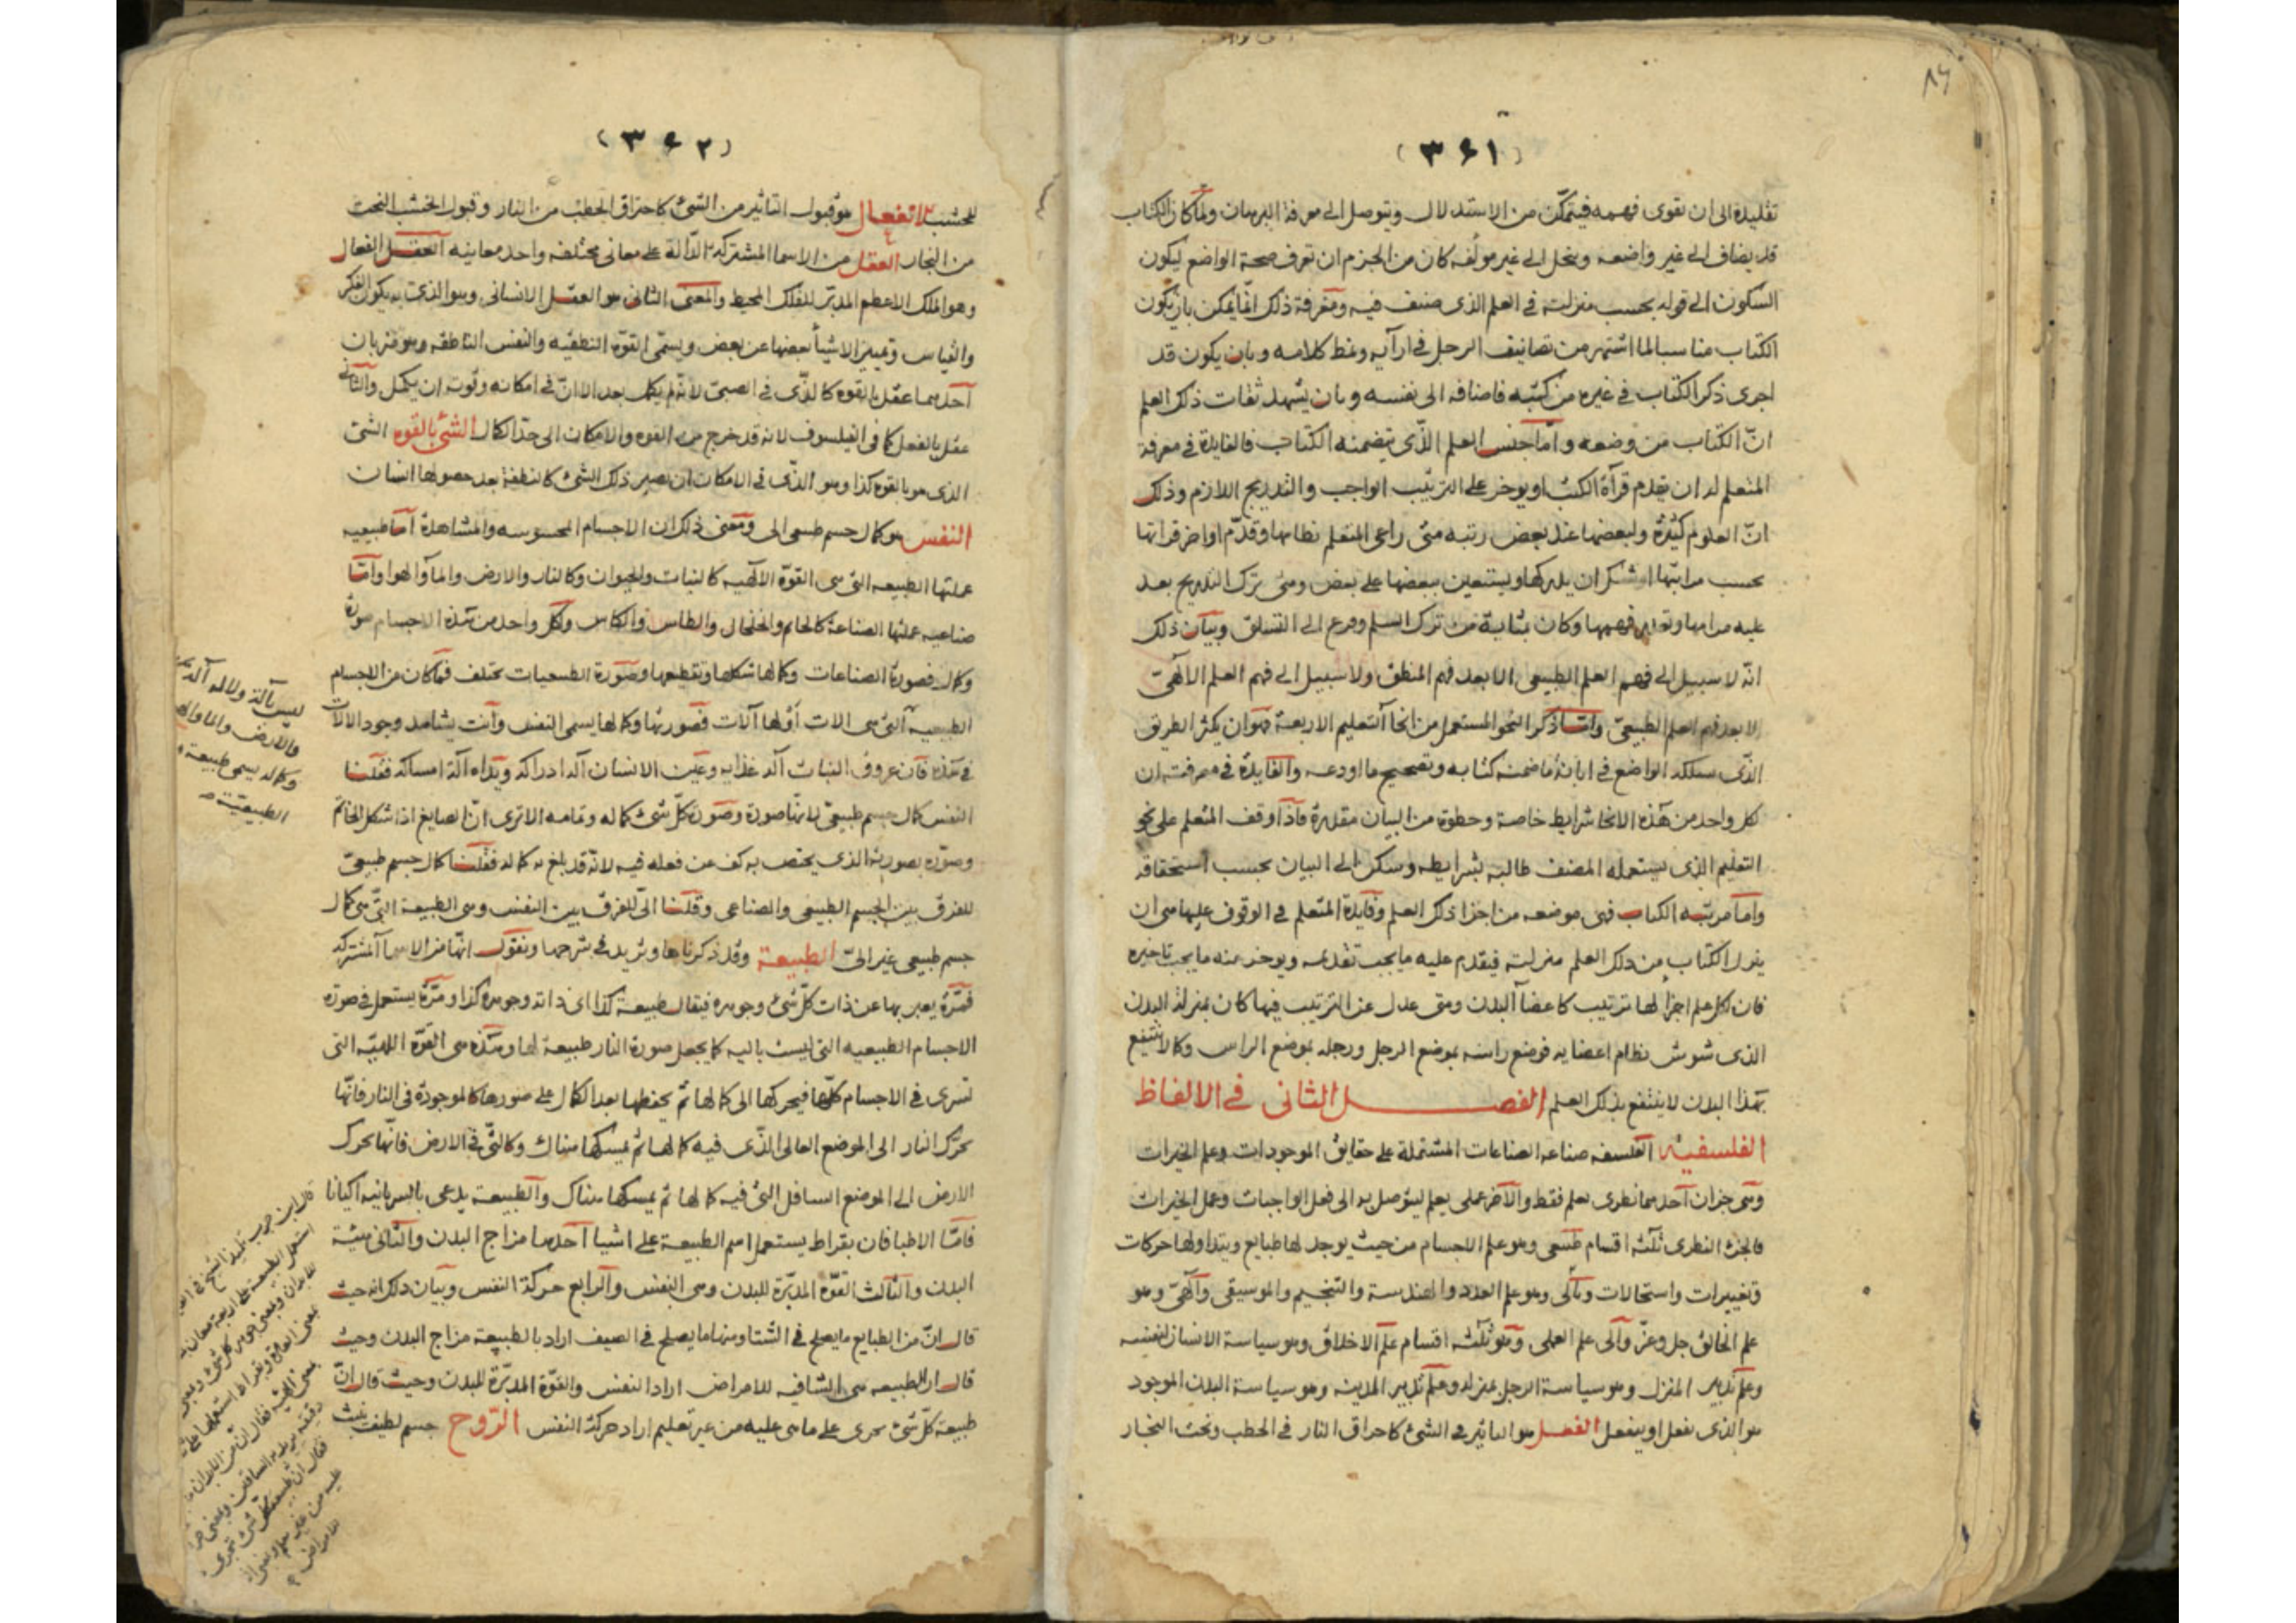 ٨٩
(٣٤١)
تقليده الى ان تقوى فهمه فيتمكن من الاستدلال ويتوصل الى معرفة البرهان ولما كان الكتاب
قد يضاف الى غير واضعه وينحل الى غير مؤلفه كان من الحزم ان تعرف صحة الواضع ليكون
السكون الى قوله بحسب منزلته في العلم الذى صنف فيه ومعرفة ذلك انما يمكن بان يكون
الكتاب مناسبا لما اشتهر من تصانيف الرجل في ارآيه ونمط كلامه وبان يكون قد
اجرى ذكر الكتاب في غيره من كتبه فاضافه الى نفسه وبان يشهد ثقات ذلك العلم
انّ الكتاب من وضعه وامّا جنس العلم الذّى يتضمنه الكتاب فالفايدة في معرفة
المتعلم له ان يقدم قرآة الكتب او يوخر على الترتيب الواجب والتدريج اللازم وذلك
انّ العلوم كثيرة ولبعضها عند بعض رتبه متى راعى المتعلم نظامها وقدّم اواخر قراتها
بحسب مراتبها ان يدركها ويستعين ببعضها على بعض ومتى ترك التدريج بعد
عليه مرامها وتعذر فهمها وكان بمثابة من ترك السلم وفرع الى التسلق وبيان ذلك
انّه لا سبيل الى فهم العلم الطبيعى الا بعد فهم المنطق ولا سبيل الى فهم العلم الالهىّ
الا بعد فهم العلم الطبيعىّ وامّا ذكر النحو المستعمل من انحا التعليم الاربعة فهو ان يكثر الطريق
الذّى سلكه الواضع في ابانة ما ضمنه كتابه وتصحيح ما اودعه والفايدة في معرفته ان
لكل واحد من هذه الانحا شرايط خاصة وحظوة من البيان مقدرة فاذا وقف المتعلم على نحو
التعليم الذى يستعمله المصنف طالبه بشرايطه وسكن الى البيان بحسب استحقاقه
وامّا مرتبه الكتاب فهى موضعه من اجزا ذلك العلم وفايدة المتعلم في الوقوف عليها هى ان
ينزل الكتاب من ذلك العلم منزلته فيقدم عليه ما يجب تقديمه ويوخر عنه ما يجب تاخيره
فان لكل علم اجزا لها ترتيب كاعضآ البدن ومتى عدل عن الترتيب فيها كان بمنزلة البدن
الذى شوش نظام اعضايه فوضع راسه بموضع الرجل ورجله بموضع الراس وكما لا ينتفع
بهذا البدن لا ينتفع بذلك العلم الفصل الثانى في الالفاظ
الفلسفيه الفلسفه صناعه الصناعات المشتملة على حقايق الموجودات وعلم الخيرات
وهى جزان احدهما نظرى يعلم فقط والآخر عملى يعلم ليتوصل به الى فعل الواجبات وعمل الخيرات
فالجزء النظرى ثلثه اقسام طبيعى وهو علم الاجسام من حيث يوجد لها طبايع ويتداولها حركات
وتغييرات واستحالات وهو علم العدد والهندسة والتنجيم والموسيقى والهىّ وهو
علم الخالق جل وعزّ والى علم العلمى وهو ثلثه اقسام علم الاخلاق وهو سياسة الانسان لنفسه
وعلم تدبير المنزل وهو سياسة الرجل بمنزله وعلم تدبير المدينه وهو سياسة البدن الموجود
هو الذى يفعل او ينفعل الفعل هو التاثير في الشئ كاحراق النار في الحطب ونحت النجار
(٣٤٢)
للخشب الانفعال هو قبول التاثير من الشئ كاحتراق الحطب من النار وقبول الخشب النحت
من النجار العقل من الاسما المشتركة الدّالة على معانى مختلفه واحد معانيه العقل الفعال
وهو الملك الاعظم المدبّر للفلك المحيط والمعنى الثانى هو العقل الانسانى وهو الذى به يكون الفكر
والقياس وتمييز الاشيآ بعضها عن بعض ويسمّى القوة النطقيه والنفس الناطقه وهو ضربان
احدهما عقل بالقوه كالذّى في الصبىّ لانّه لم يكمل بعد الا انّ في امكانه وقوته ان يكمل والثانى
عقل بالفعل كما في الفيلسوف لانه قد خرج من القوه والامكان الى حدّ الكمال الشئ بالقوه الشئ
الذى هو بالقوه كذا وهو الذّى في الامكان ان يصير ذلك الشئ كالنطفة بعد حصولها انسان
النفس هو كمال جسم طبيعى الى ومعنى ذلك ان الاجسام المحسوسه والمشاهدة امّا طبيعيه
عملتها الطبيعه التى هى القوّة الالهيه كالنبات والحيوان وكالنار والارض والمآ والهوا وامّا
صناعيه عملتها الصناعة كالخاتم والخلخال والطاس والكاس ولكل واحد من هذه الاجسام صورة
وكمال فصورة الصناعات وكمالها شكلها وتقطيعها وصورة الطبيعيات تختلف فما كان من الاجسام
الطبيعيه التى هى الات او لها آلات فصورتها وكمالها يسمى النفس وانت يشاهد وجود الالات
في هذه فان عروق النبات آلة غذايه وعين الانسان آلة ادراكه ويداه آلة امساكه فقلنا
النفس كمال جسم طبيعىّ لانّها صورة وصورة كلّ شئ كماله وتمامه الا ترى انّ الصايغ اذا شكل الخاتم
وصوّره بصورته الذى يختص به كف عن فعله فيه لانّه قد بلغ به كماله فقلنا كمال جسم طبيعىّ
للفرق بين الجسم الطبيعى والصناعى وقلنا الىّ للفرق بين النفس وهى الطبيعة التّى هى كمال
جسم طبيعى غير الىّ الطبيعة وقد ذكرناها ونزيد في شرحها ونقول انّها من الاسمآ المشتركه
فمرّة يعبر بها عن ذات كلّ شئ وجوهره فيقال طبيعة كذا اى ذاته وجوهره كذا ومرّة يستعمل في صورة
الاجسام الطبيعيه التى ليست باليه كما يجعل صورة النار طبيعة لها وهذه هى القوّة الالهيّه التى
تسرى في الاجسام كلّها فيحركها الى كمالها ثم يحفظها بعد الكمال على صورها كالموجودة في النار فانّها
تحرّك النار الى الموضع العالى الذّى فيه كمالها ثم يمسكها هناك وكالتّى في الارض فانّها تحرك
الارض الى الموضع السافل الّتى فيه كمالها ثم يمسكها هناك والطبيعة يدعى بالسريانيه اكيانا
فامّا الاطبا فان بقراط يستعمل اسم الطبيعة على اشيا احدها مزاج البدن والثانى هيئة
البدن والثالث القوّة المدبّرة للبدن وهى النفس والرابع حركة النفس وبيان ذلك انه حيث
قال انّ من الطبايع ما يصلح في الشتا ومنها ما يصلح في الصيف اراد بالطبيعة مزاج البدن وحيث
قال ان الطبيعه هى الشافيه للامراض اراد النفس والقوّة المدبّرة للبدن وحيث قال انّ
طبيعة كلّ شئ يجرى على ما هى عليه من غير تعليم اراد حركة النفس الرّوح جسم لطيف
ليس بآلة ولا له آلة
والارض والما والهوا
وكماله يسمى طبيعة
الطبيعيّة